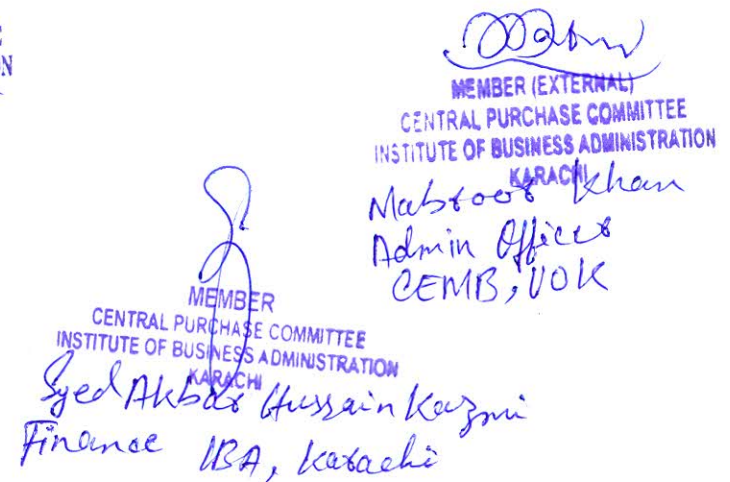 N
MEMBER (EXTERNAL)
CENTRAL PURCHASE COMMITTEE
INSTITUTE OF BUSINESS ADMINISTRATION
KARACHI
Mabroor Khan
Admin Officer
CEMB, UOK
MEMBER
CENTRAL PURCHASE COMMITTEE
INSTITUTE OF BUSINESS ADMINISTRATION
KARACHI
Syed Akbar Hussain Kazmi
Finance IBA, Karachi